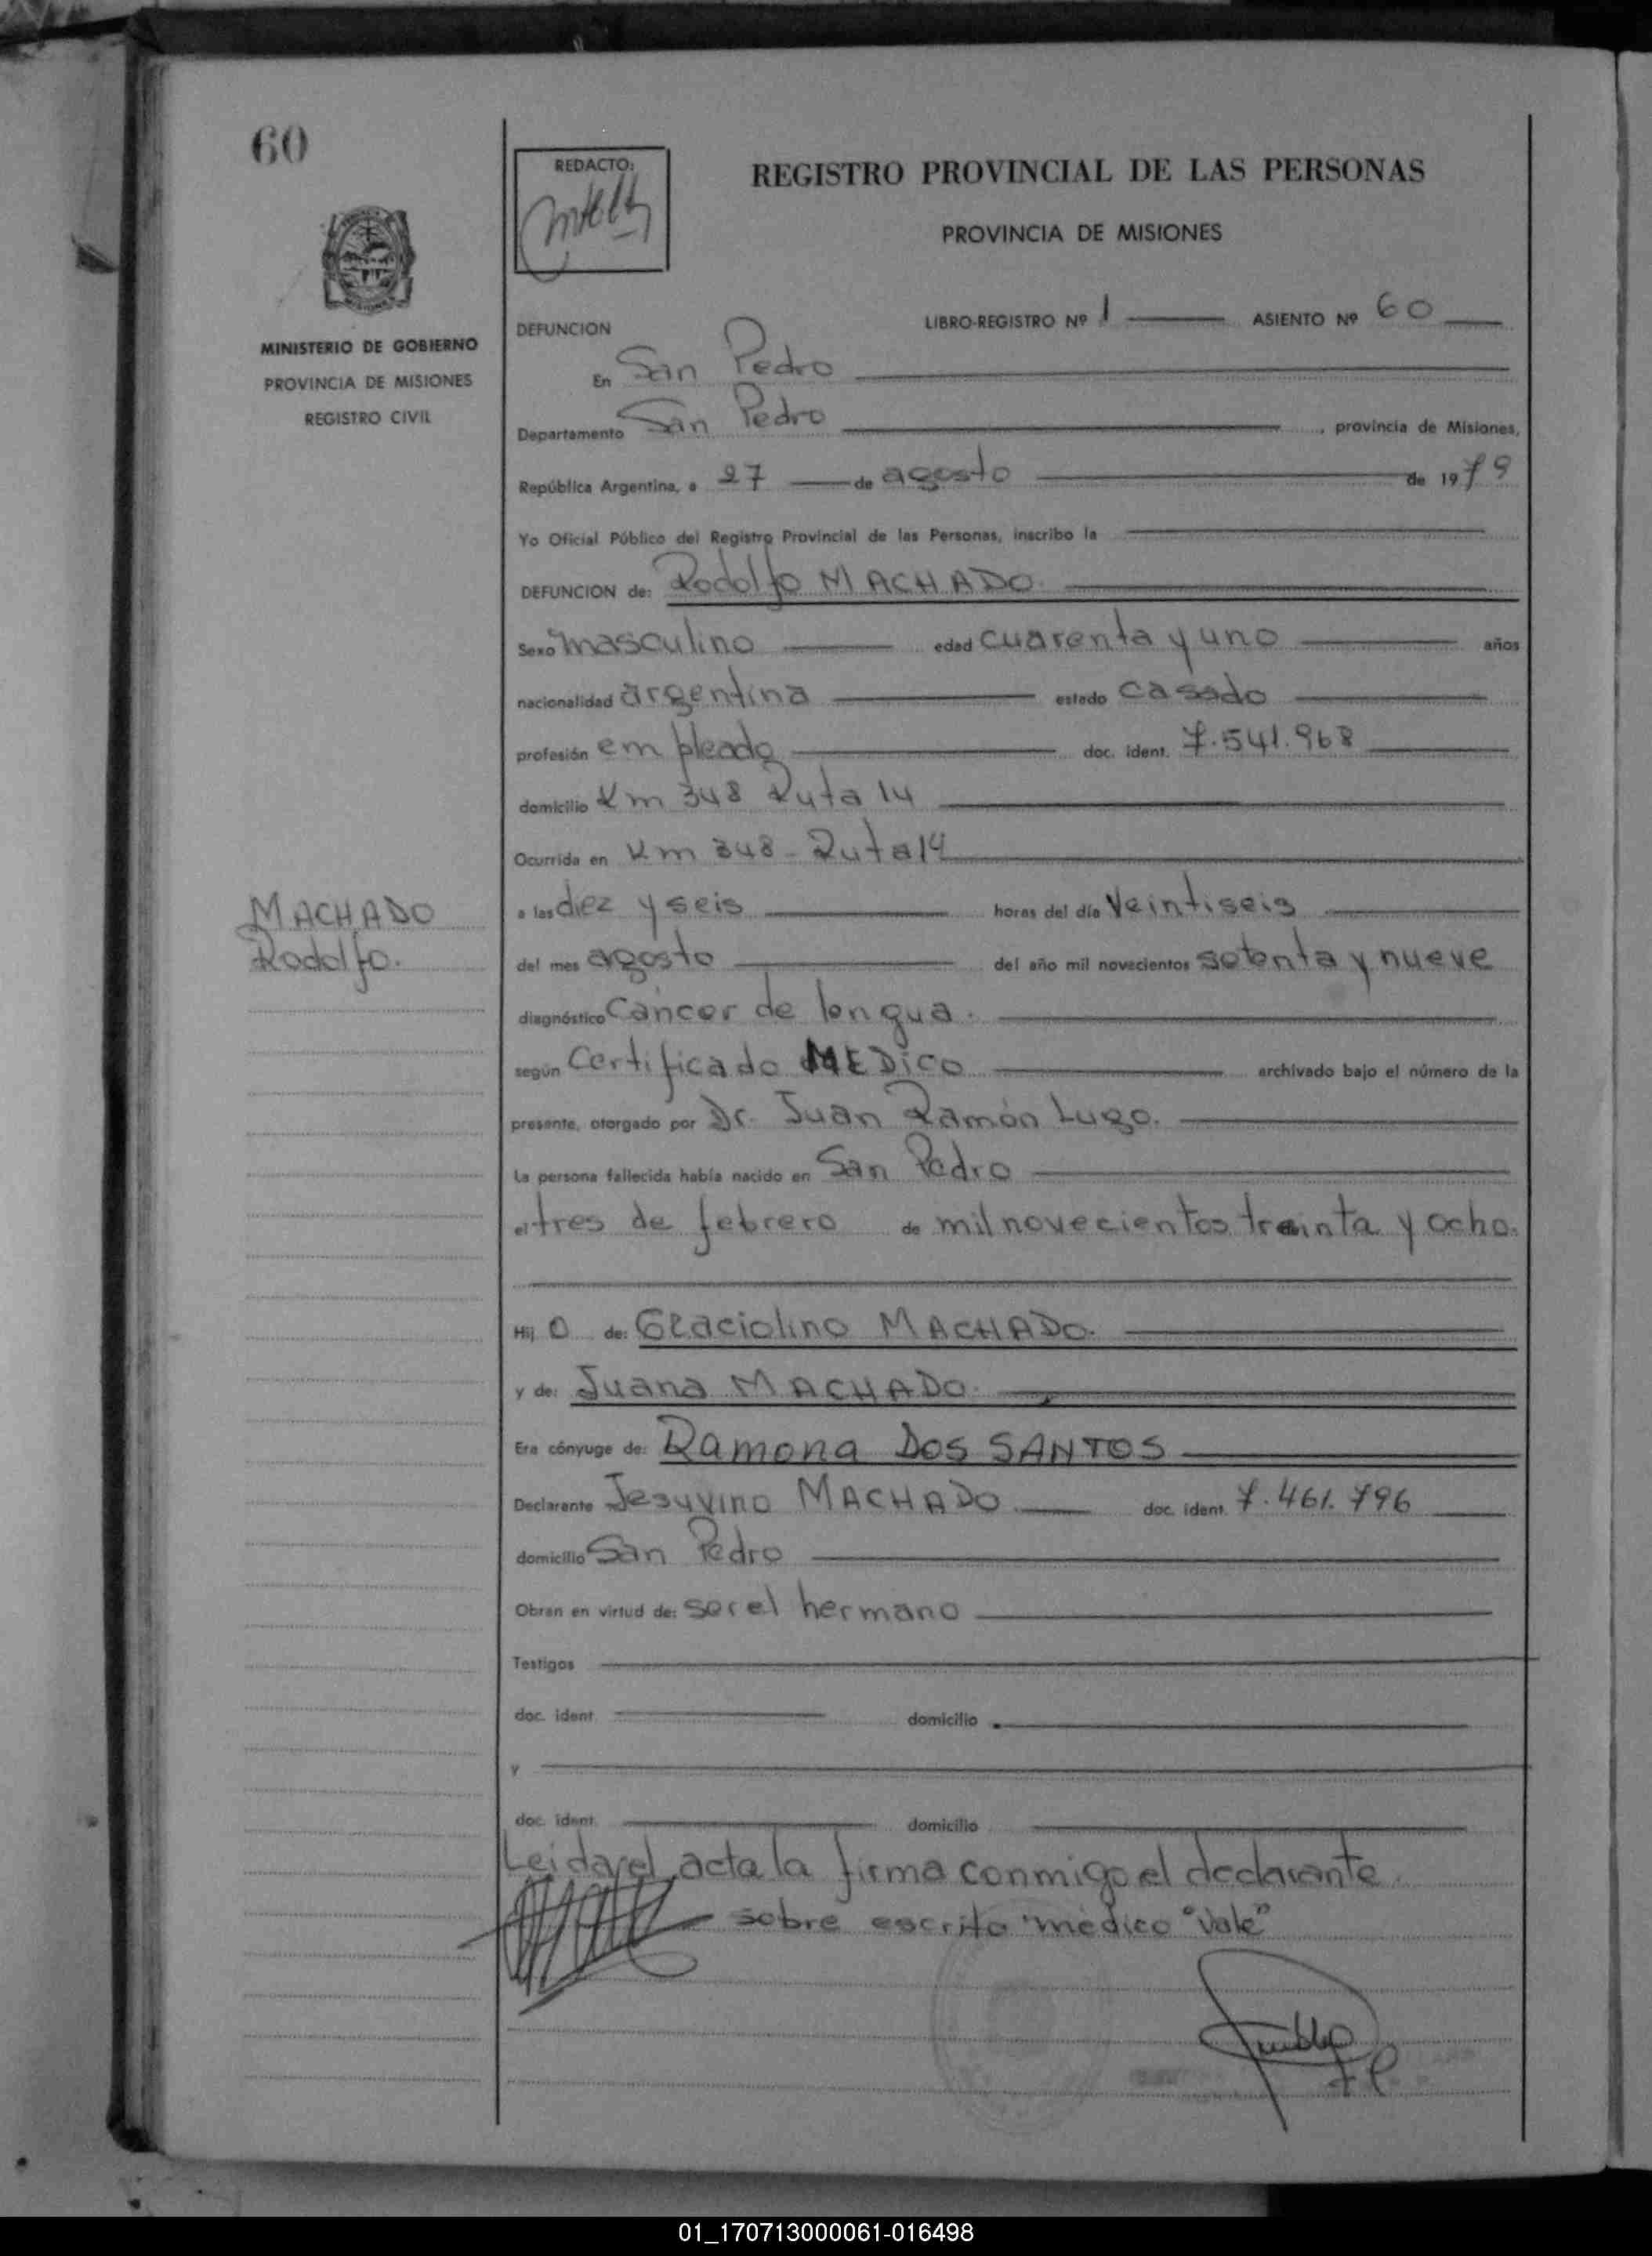 60
MINISTERIO DE GOBIERNO
PROVINCIA DE MISIONES
REGISTRO CIVIL
MACHADO
Rodolfo.
REDACTO:
REGISTRO PROVINCIAL DE LAS PERSONAS
PROVINCIA DE MISIONES
LIBRO-REGISTRO Nº 1 ASIENTO Nº 60
DEFUNCION
En San Pedro
Departamento San Pedro , provincia de Misiones,
República Argentina, a 27 de agosto de 1979
Yo Oficial Público del Registro Provincial de las Personas, inscribo la
DEFUNCION de: Rodolfo MACHADO.
Sexo masculino edad cuarenta y uno años
nacionalidad argentina estado casado
profesión empleado doc. ident. 7.541.968
domicilio Km 348 Ruta 14
Ocurrida en Km 348 - Ruta 14
a las diez y seis horas del día Veintiseis
del mes agosto del año mil novecientos setenta y nueve
diagnóstico Cancer de lengua.
según Certificado MEDico archivado bajo el número de la
presente, otorgado por Dr. Juan Ramón Lugo.
La persona fallecida había nacido en San Pedro
el tres de febrero de mil novecientos treinta y ocho.
Hij o de: Graciolino MACHADO.
y de: Juana MACHADO.
Era cónyuge de: Ramona DOS SANTOS
Declarante Jesuvino MACHADO doc. ident. 7.461.796
domicilio San Pedro
Obran en virtud de: ser el hermano
Testigos
doc. ident. domicilio
y
doc. ident. domicilio
Leida el acta la firma conmigo el declarante.
sobre escrito "medico "Vale"
01_170713000061-016498